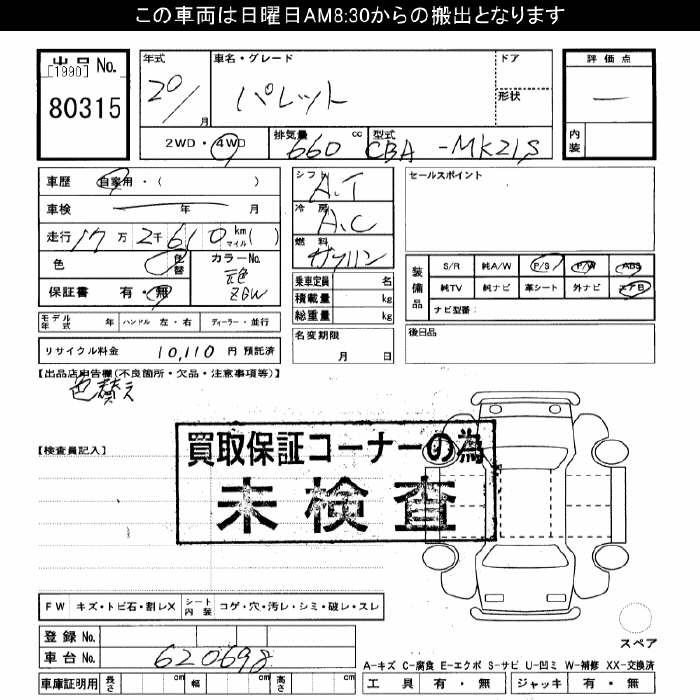 この車両は日曜日AM8:30からの搬出となります
出品No.
[1990]
80315
年式
20/
月
車名・グレード
パレット
ドア
形状
評価点
—
内装
2WD・4WD
排気量
660
cc
型式
CBA-MK21S
車歴
自家用・( )
車検
年 月
走行 17万2千610km( )
マイル
色
色替
カラーNo.
元色
ZGW
保証書 有・無
シフト
A.T
冷房
A.C
燃料
ガソリン
乗車定員 名
積載量 kg
総重量 kg
セールスポイント
装備品
S/R 純A/W P/S P/W ABS
純TV 純ナビ 革シート 外ナビ エアB
ナビ型番:
モデル年式 年 ハンドル 左・右 ディーラー・並行
名変期限
月 日
後日品
リサイクル料金 10,110 円 預託済
【出品店申告欄(不良箇所・欠品・注意事項等)】
色替え
買取保証コーナーの為
未検査
【検査員記入】
FW キズ・トビ石・割レX シート内装 コゲ・穴・汚レ・シミ・破レ・スレ
登録No.
車台No. 620698
スペア
A-キズ C-腐食 E-エクボ S-サビ U-凹ミ W-補修 XX-交換済
車庫証明用 長さ cm 幅 cm 高さ cm
工具 有・無 ジャッキ 有・無